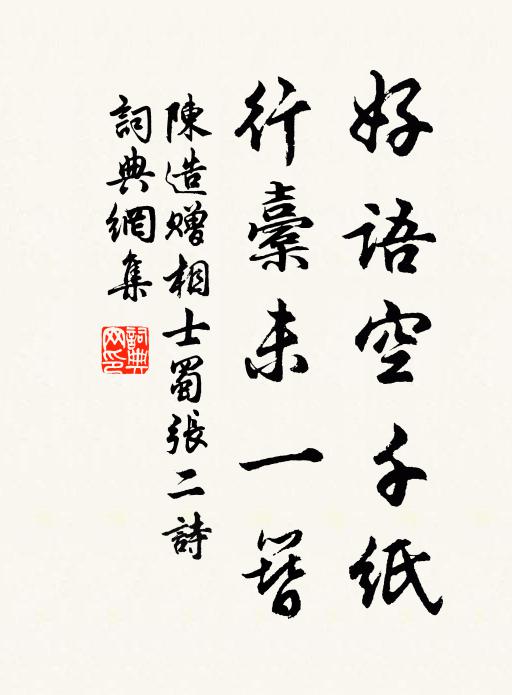 好語空千紙
行橐未一簪
陳造贈相士蜀張二詩
詞典網集
詞典网印